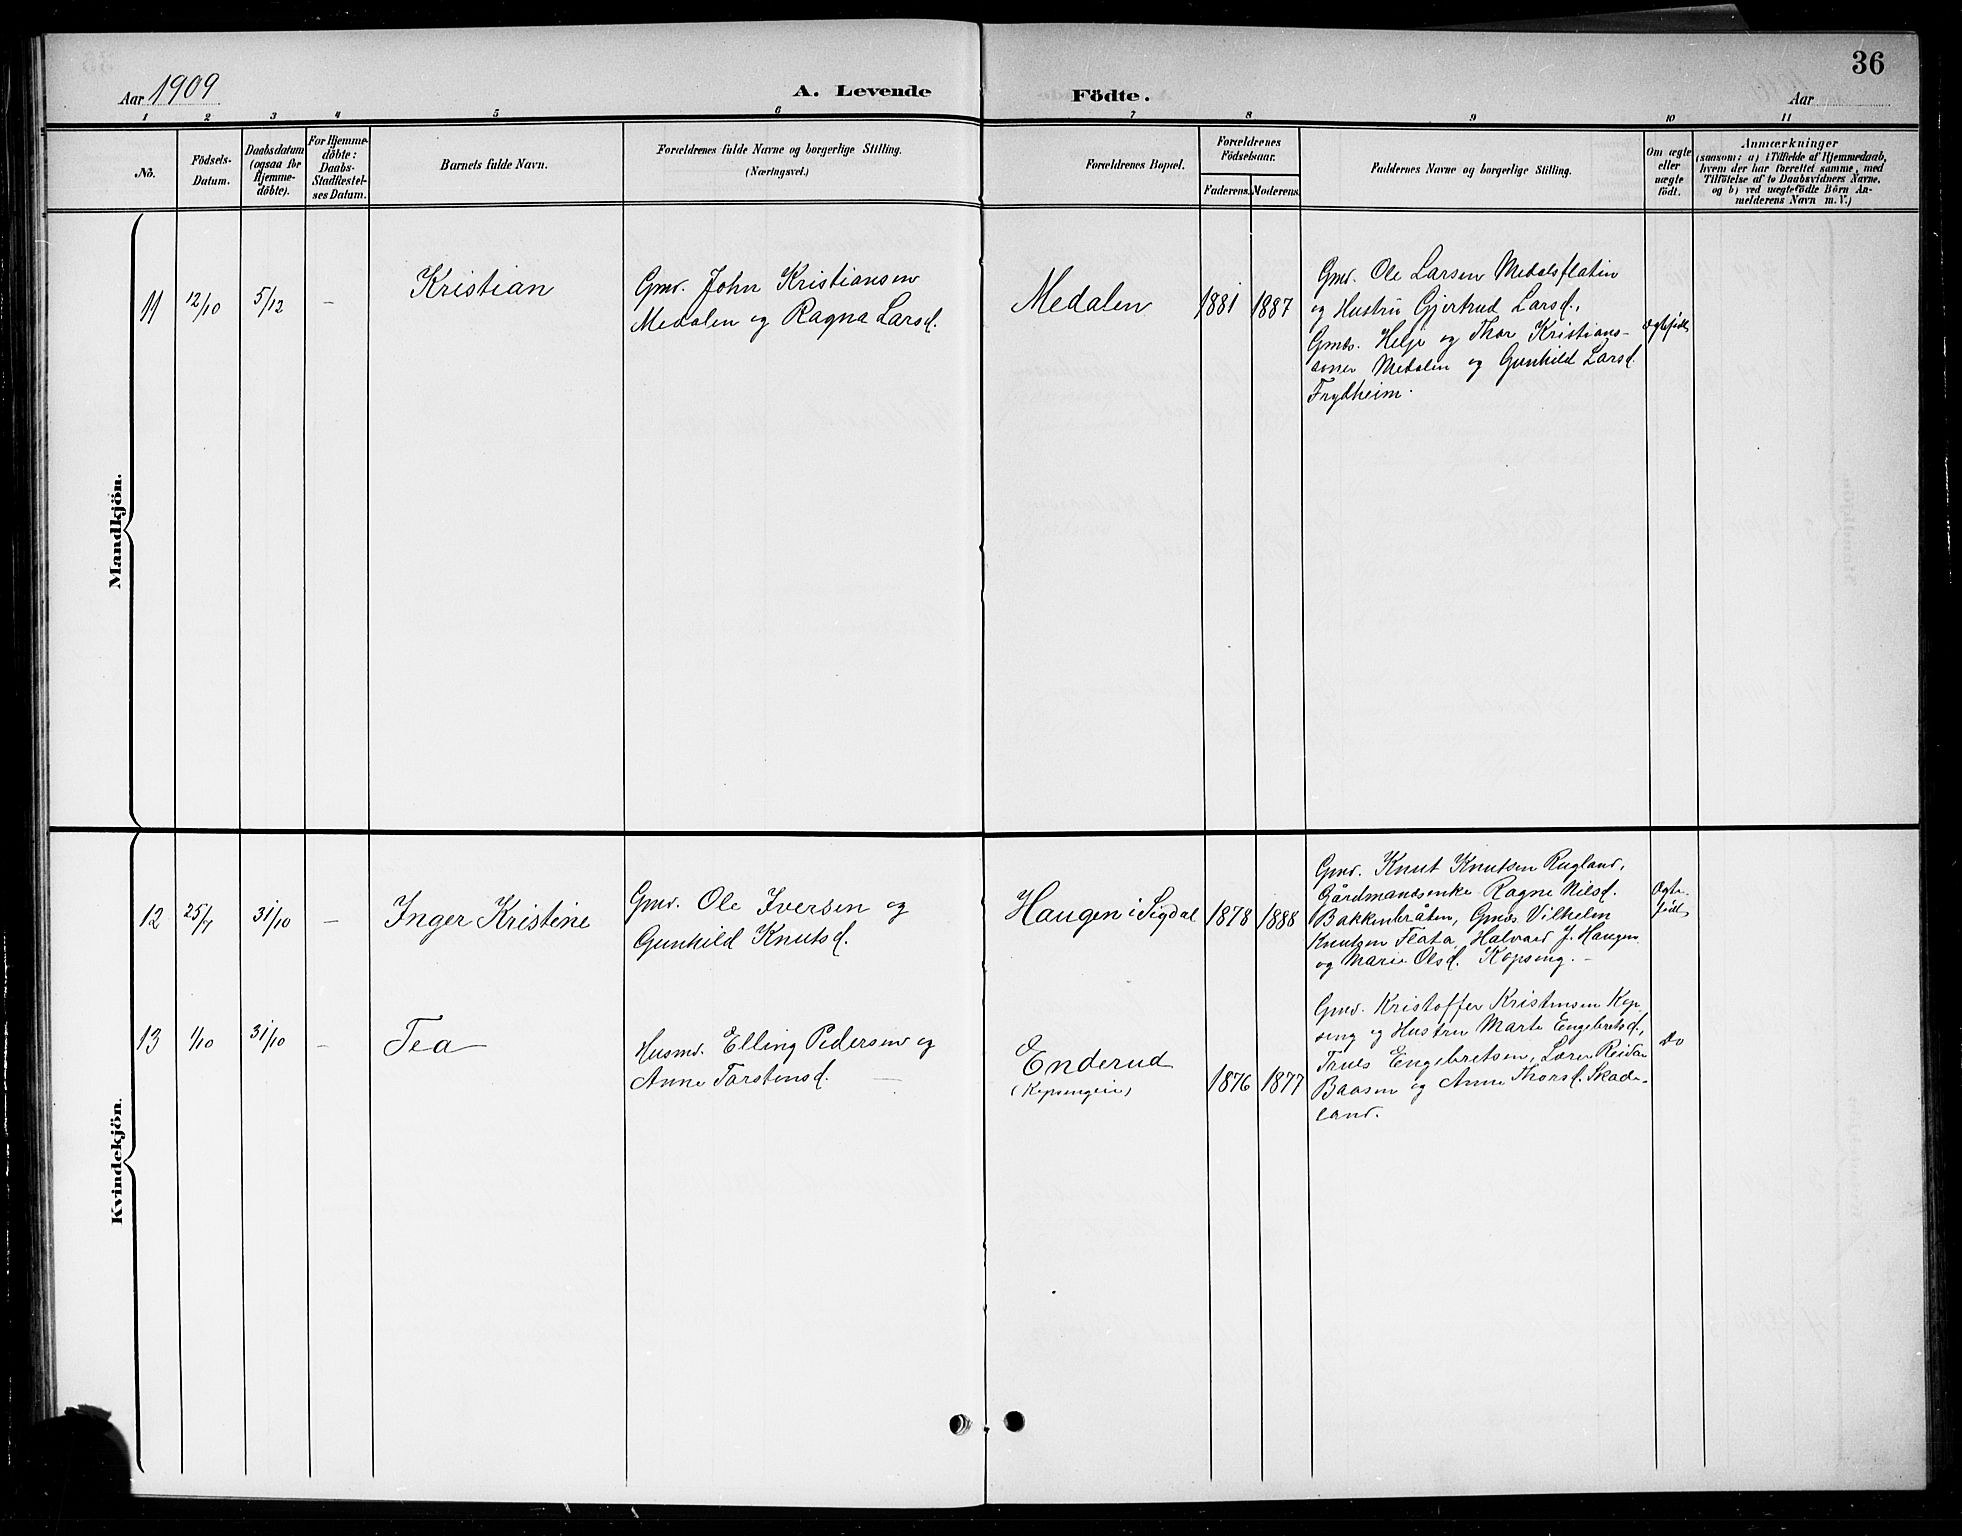 36
Aar 1909
A. Levende Födte.
Aar
1 2 3 4 5 6 7 8 9 10 11
No.
Födsels-
Datum.
Daabsdatum
(ogsaa for
Hjemme-
döbte).
For Hjemme-
döbte:
Daabs-
Stadfæstel-
ses Datum.
Barnets fulde Navn.
Forældrenes fulde Navne og borgerlige Stilling.
(Næringsvei.)
Forældrenes Bopæl.
Forældrenes
Födselsaar.
Faderens. Moderens.
Faddernes Navne og borgerlige Stilling.
Om ægte
eller
uægte
født.
Anmærkninger
(saasom: a) i Tilfælde af Hjemmedaab,
hvem der har forrettet samme, med
Tilföielse af to Daabsvidners Navne,
og b) ved uægtefödte Börn An-
melderens Navn m. V.)
Mandkjön.
11 12/10 5/12 –
Kristian
Gmd. John Kristiansen
Medalen og Ragna Larsd.
Medalen
1881 1887
Gmd. Ole Larsen Medalsflatin
og Hustru Gjertrud Larsd.,
Gmbs. Helje og Thor Kristians-
sønner Medalen og Gunhild Larsd.
Frydheim.
Ægtefødt
Kvindekjön.
12 25/7 31/10 –
Inger Kristine
Gmd. Ole Iversen og
Gunhild Knutsd.
Haugen i Sigdal
1878 1888
Gmd. Knut Knutsen Rugland,
Gårdmandsenke Ragne Nilsd.
Bakkenbråten, Gmds Vilhelm
Knutsen Flata, Halvard J. Haugen
og Marie Olsd. Kopseng. –
Ægte-
født
13 1/10 31/10 –
Tea
Husmd. Elling Pedersen og
Anne Torstensd. –
Enderud
(Kopsengeie)
1876 1877
Gmd. Kristoffer Kristensen Kop-
seng og Hustru Marte Engebretsd.,
Truls Engebretsen, Lærer Reidar
Baasen og Anne Thorsd. Skade-
land.
Do